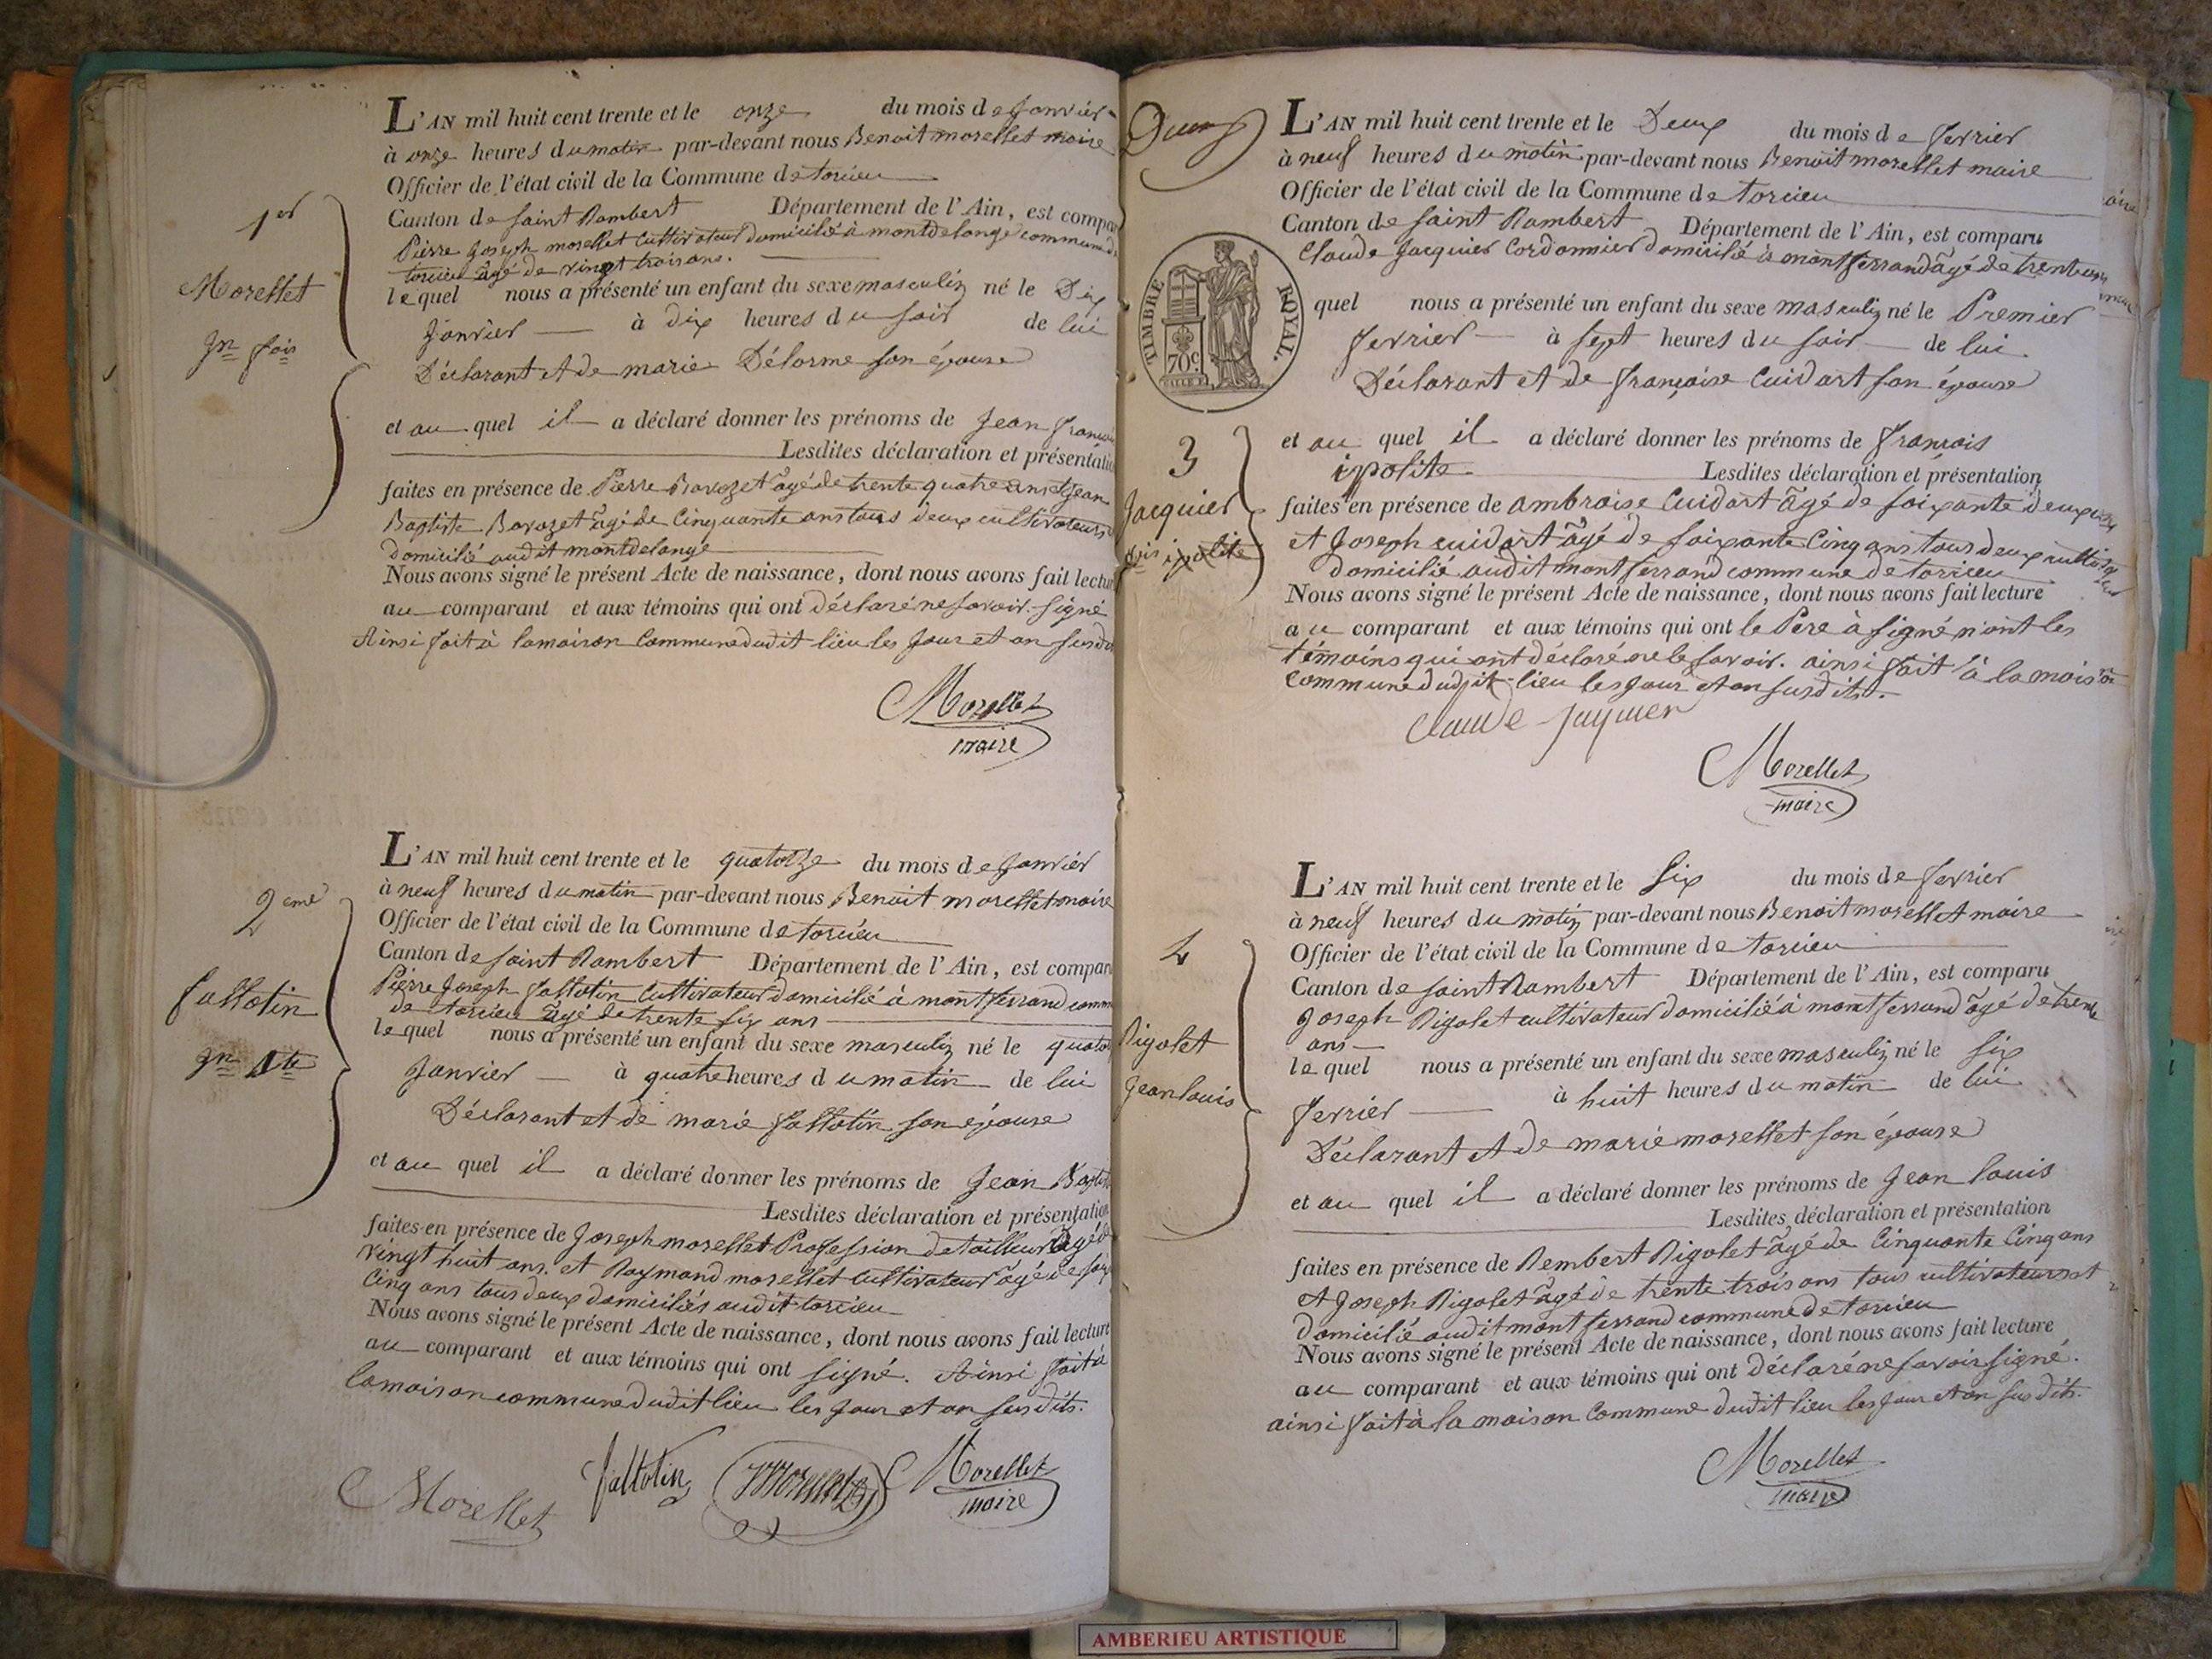 L'AN mil huit cent trente et le onze du mois de Janvier
à onze heures du matin par-devant nous Benoit morellet maire
Officier de l'état civil de la Commune de torcieu
Canton de Saint Rambert Département de l'Ain, est compar
Pierre Joseph morellet Cultivateur domicilié à montdelange commune de
torcieu âgé de vingt trois ans.
le quel nous a présenté un enfant du sexe masculin né le Dix
Janvier à dix heures du soir de lui
Déclarant et de marie Délorme son épouse
et au quel il a déclaré donner les prénoms de Jean françois
Lesdites déclaration et présentation
faites en présence de Pierre Bavozet âgé de trente quatre ans et Jean
Baptiste Bavozet âgé de Cinquante ans tous deux cultivateurs
domicilié audit montdelange
Nous avons signé le présent Acte de naissance, dont nous avons fait lectur
au comparant et aux témoins qui ont déclaré ne savoir signé
Ainsi fait à la maison Commune dudit lieu les Jour et an susdit
Morellet
maire
1er
Morellet
Jn fois
L'AN mil huit cent trente et le quatorze du mois de Janvier
à neuf heures du matin par-devant nous Benoit morellet maire
Officier de l'état civil de la Commune de torcieu
Canton de Saint Rambert Département de l'Ain, est compar
Pierre Joseph fallotin Cultivateur domicilié à montferrand comm
de torcieu âgé de trente six ans
le quel nous a présenté un enfant du sexe masculin né le quato
Janvier à quatre heures du matin de lui
Déclarant et de marie fallotin son épouse
et au quel il a déclaré donner les prénoms de Jean Baptist
Lesdites déclaration et présentation
faites en présence de Joseph morellet Profession de tailleur âgé de
vingt huit ans. et Raymond morellet Cultivateur âgé de soix
Cinq ans tous deux domiciliés audit torcieu
Nous avons signé le présent Acte de naissance, dont nous avons fait lecture
au comparant et aux témoins qui ont signé. Ainsi fait à
la maison commune dudit lieu les Jour et an susdits.
Morellet fallotin Morellet Morellet
maire
2eme
fallotin
Jn Bte
Deux
L'AN mil huit cent trente et le Deux du mois de fevrier
à neuf heures du matin par-devant nous Benoit morellet maire
Officier de l'état civil de la Commune de torcieu
Canton de Saint Rambert Département de l'Ain, est comparu
Claude Jacquier Cordonnier domicilié à montferrand âgé de trente un
quel nous a présenté un enfant du sexe masculin né le Premier
fevrier à sept heures du soir de lui
Déclarant et de françoise Cuidart son épouse
et au quel il a déclaré donner les prénoms de francois
ipolite Lesdites déclaration et présentation
faites en présence de ambroise Cuidart âgé de soixante deux ans
et Joseph cuidart âgé de soixante Cinq ans tous deux cultivateurs
domicilié audit montferrand commune de torcieu
Nous avons signé le présent Acte de naissance, dont nous avons fait lecture
au comparant et aux témoins qui ont le Pere à signé n'ont les
témoins qui ont déclaré ne le savoir. ainsi fait à la maison
commune dudit lieu les Jour et an susdits.
Claude Jaquier
Morellet
maire
TIMBRE ROYAL.
70c.
3
Jacquier
fois ipolite
L'AN mil huit cent trente et le Six du mois de fevrier
à neuf heures du matin par-devant nous Benoit morellet maire
Officier de l'état civil de la Commune de torcieu
Canton de Saint Rambert Département de l'Ain, est comparu
Joseph Rigolet cultivateur domicilié à montferrand âgé de trente
ans
le quel nous a présenté un enfant du sexe masculin né le six
fevrier à huit heures du matin de lui
Déclarant et de marie morellet son épouse
et au quel il a déclaré donner les prénoms de Jean louis
Lesdites déclaration et présentation
faites en présence de Rembert Rigolet âgé de Cinquante Cinq ans
et Joseph Rigolet âgé de trente trois ans tous cultivateurs et
domicilié audit montferrand commune de torcieu
Nous avons signé le présent Acte de naissance, dont nous avons fait lecture
au comparant et aux témoins qui ont Déclaré ne savoir signé.
ainsi fait à la maison Commune dudit lieu les Jour et an susdits.
Morellet
maire
4
Rigolet
Jean louis
AMBERIEU ARTISTIQUE